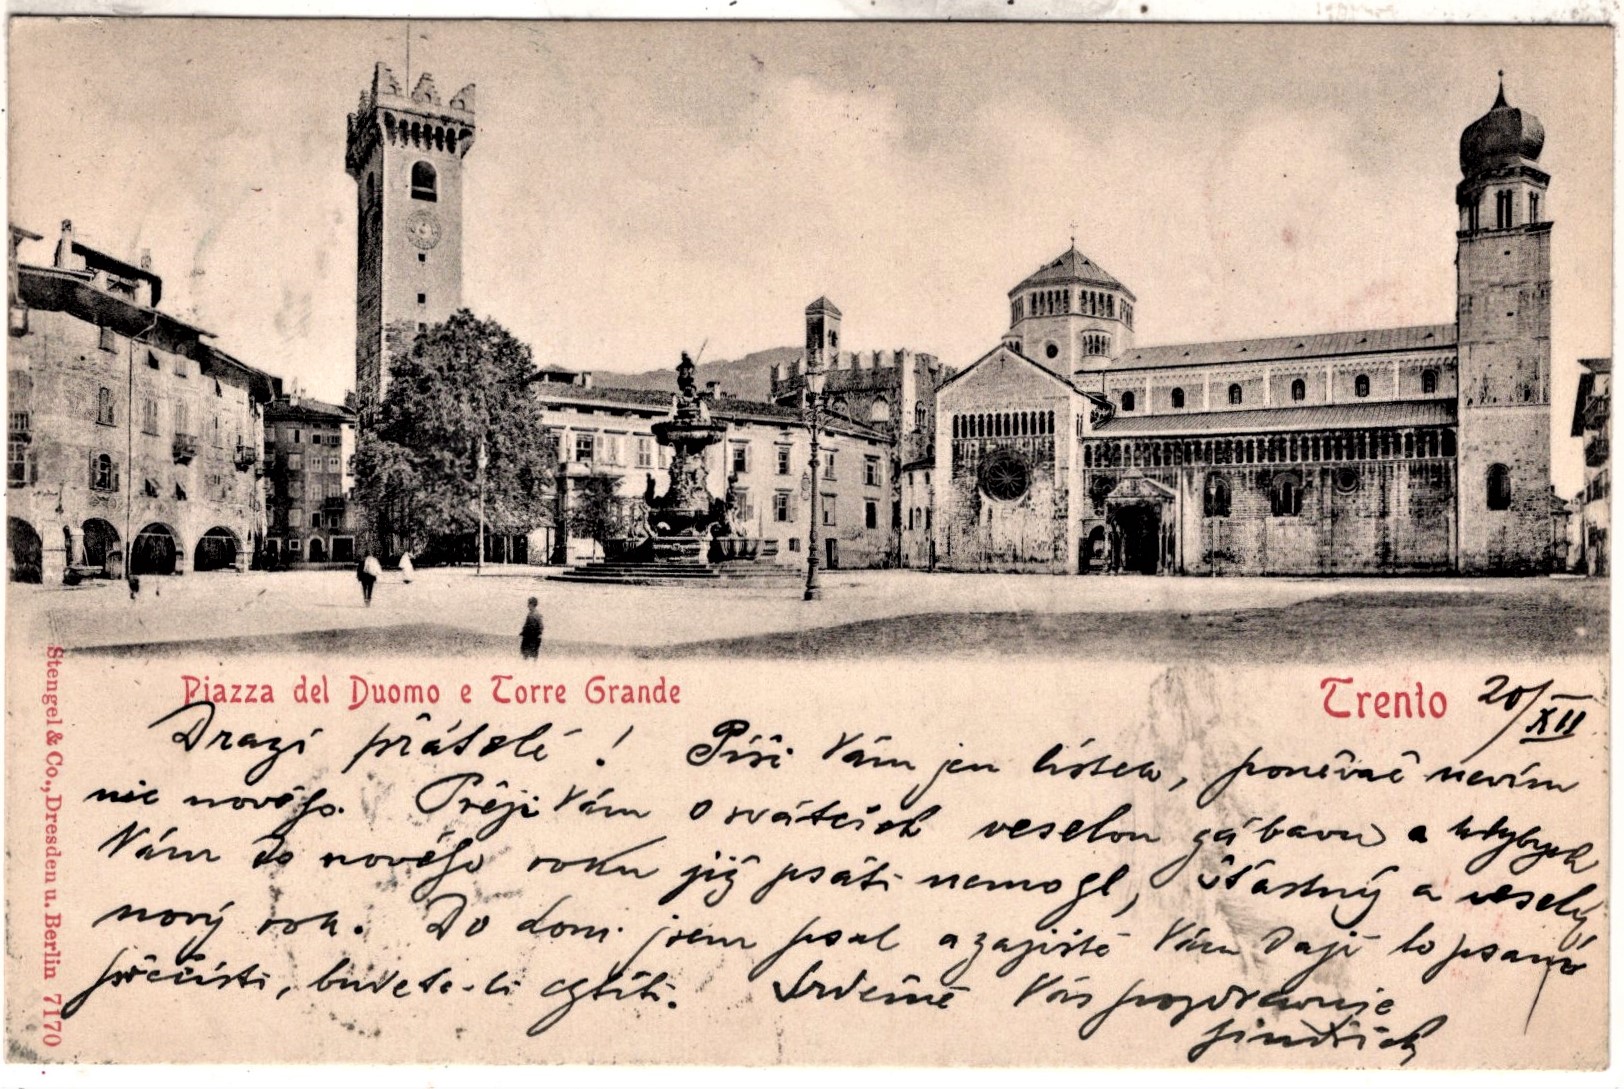 Piazza del Duomo e Torre Grande
Trento 20/XII
Drazí přátelé! Píši Vám jen lístek, poněvač nevím
nic nového. Přeji Vám o svátcích veselou zábavu a kdybych
Vám do nového roku již psáti nemohl, šťastný a veselý
nový rok. Do domu jsem psal a zajisté Vám dají to psaní
přečísti, budete-li chtíti. Srdečně Vás pozdravuje
Jindřich
Stengel & Co., Dresden u. Berlin 7170